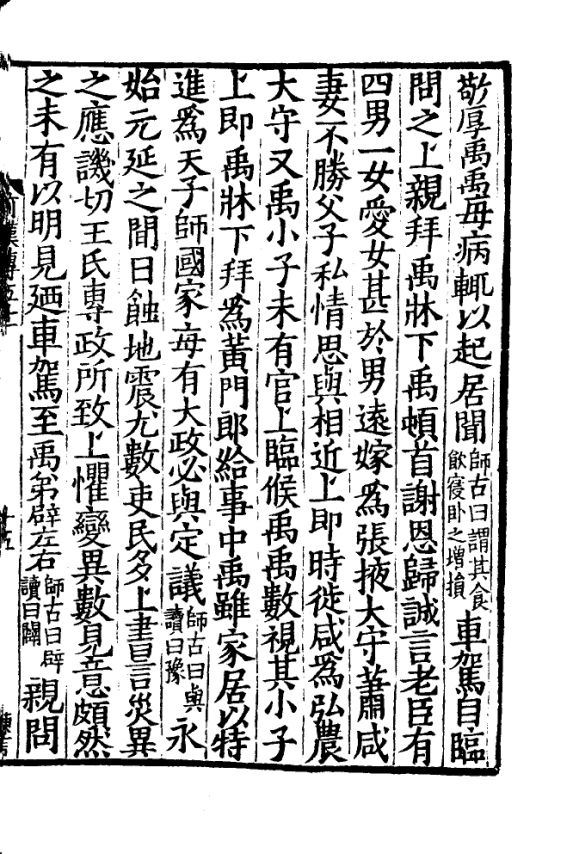 敬厚禹禹每病輒以起居聞師古曰謂其食飲寢卧之增損車駕自臨
問之上親拜禹牀下禹頓首謝恩歸誠言老臣有
四男一女愛女甚於男遠嫁爲張掖大守蕭咸
妻不勝父子私情思與相近上即時徙咸爲弘農
大守又禹小子未有官上臨候禹禹數視其小子
上即禹牀下拜爲黃門郎給事中禹雖家居以特
進爲天子師國家每有大政必與定議師古曰與讀曰豫永
始元延之間日蝕地震尤數吏民多上書言災異
之應譏切王氏專政所致上懼變異數見意頗然
之未有以明見廼車駕至禹弟辟左右師古曰辟讀曰闢親問